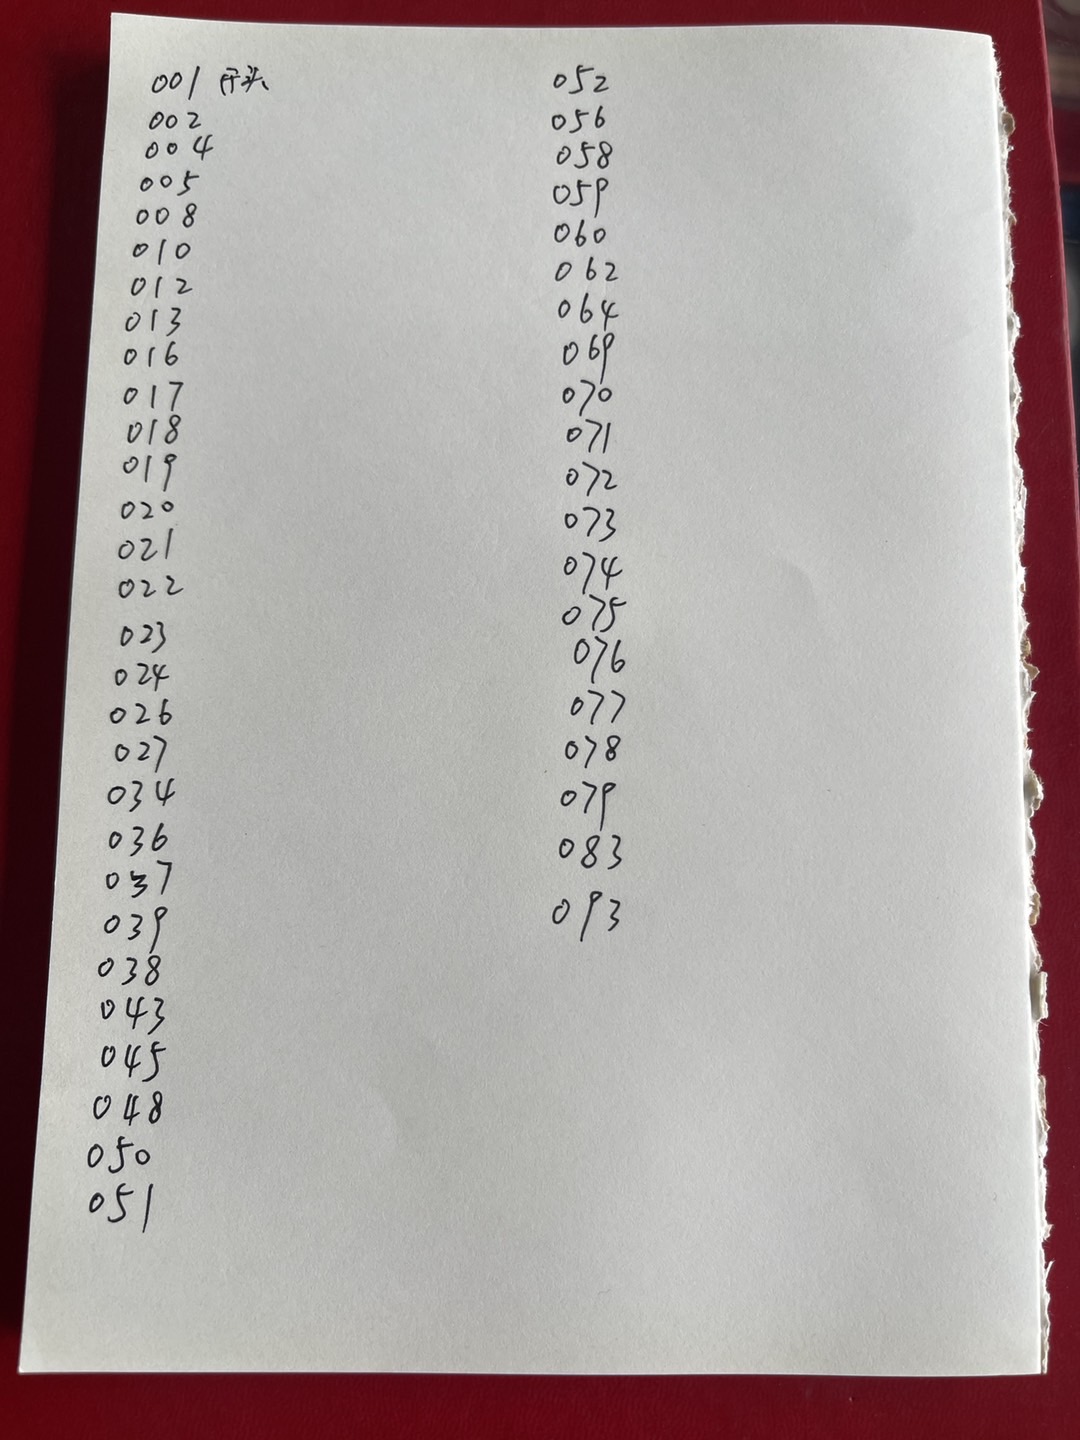 001 开头
002
004
005
008
010
012
013
016
017
018
019
020
021
022
023
024
026
027
034
036
037
039
038
043
045
048
050
051
052
056
058
059
060
062
064
069
070
071
072
073
074
075
076
077
078
079
083
093